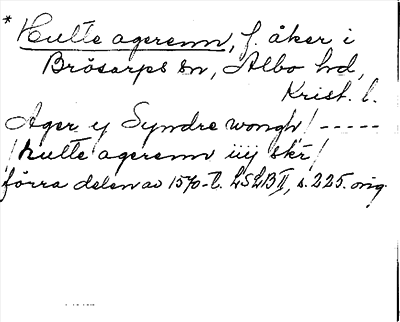 * Hulte agerenn, f. åker i
Brösarps sn, Albo hd,
Krist. l.
Ager y Syndre wongh / -----
/ hulte agerenn iiij skr /
förra delen av 1570-t. LSLB II, s. 225. orig.